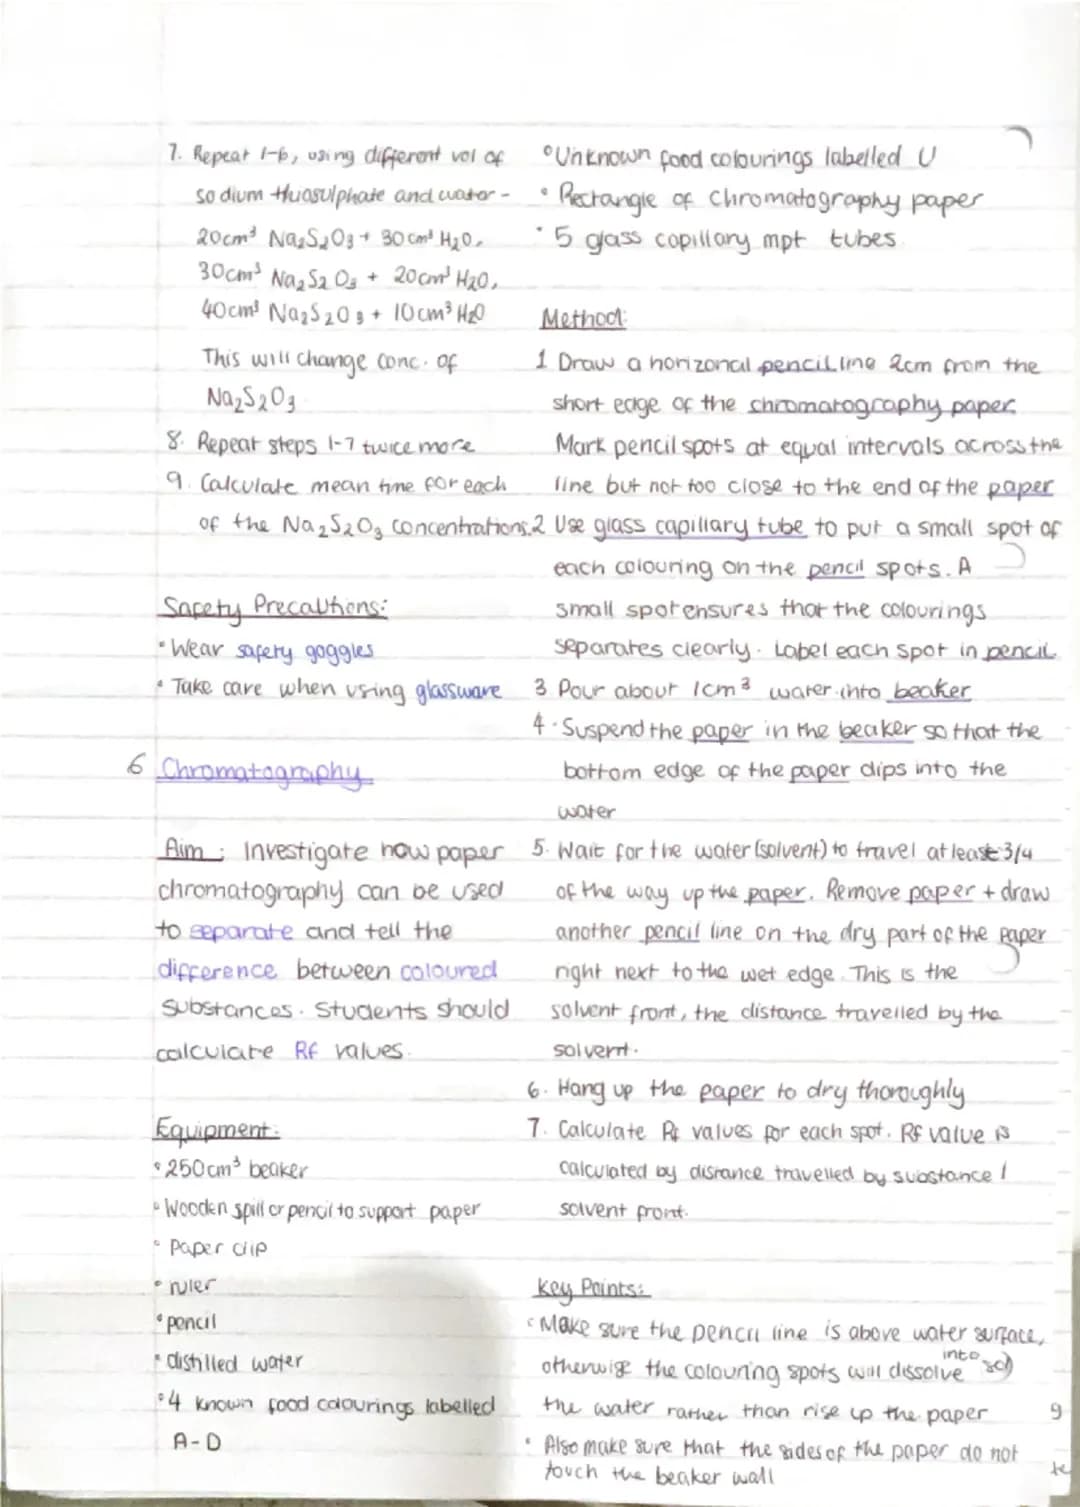 7. Repeat 1-6, using different vol of
sodium thiosulphate and water -
20cm³ Na₂S₂O₃ + 30cm³ H₂O,
30cm³ Na₂S₂O₃ + 20cm³ H₂O,
40cm³ Na₂S₂O₃ + 10cm³ H₂O
This will change conc. of
Na₂S₂O₃
8. Repeat steps 1-7 twice more
9. Calculate mean time for each
of the Na₂S₂O₃ concentrations.
Safety Precautions:
• Wear safety goggles
• Take care when using glassware
6 Chromatography
Aim: Investigate how paper
chromatography can be used
to separate and tell the
difference between coloured
substances. Students should
calculate Rf values.
Equipment:
• 250cm³ beaker
• Wooden spill or pencil to support paper
• Paper clip
• ruler
• pencil
• distilled water
• 4 known food colourings labelled
A-D
• Unknown food colourings labelled U
• Rectangle of chromatography paper
• 5 glass capillary mpt tubes
Method:
1 Draw a horizonal pencil line 2cm from the
short edge of the chromatography paper.
Mark pencil spots at equal intervals across the
line but not too close to the end of the paper
2 Use glass capillary tube to put a small spot of
each colouring on the pencil spots. A
small spot ensures that the colourings
separates clearly. Label each spot in pencil
3 Pour about 1cm³ water into beaker
4. Suspend the paper in the beaker so that the
bottom edge of the paper dips into the
water
5. Wait for the water (solvent) to travel at least 3/4
of the way up the paper. Remove paper + draw
another pencil line on the dry part of the paper
right next to the wet edge. This is the
solvent front, the distance travelled by the
solvent.
6. Hang up the paper to dry thoroughly
7. Calculate Rf values for each spot. Rf value is
calculated by distance travelled by substance /
solvent front.
Key Points:
• Make sure the pencil line is above water surface,
otherwise the colouring spots will dissolve into
the water rather than rise up the paper
• Also make sure that the sides of the paper do not
touch the beaker wall
9